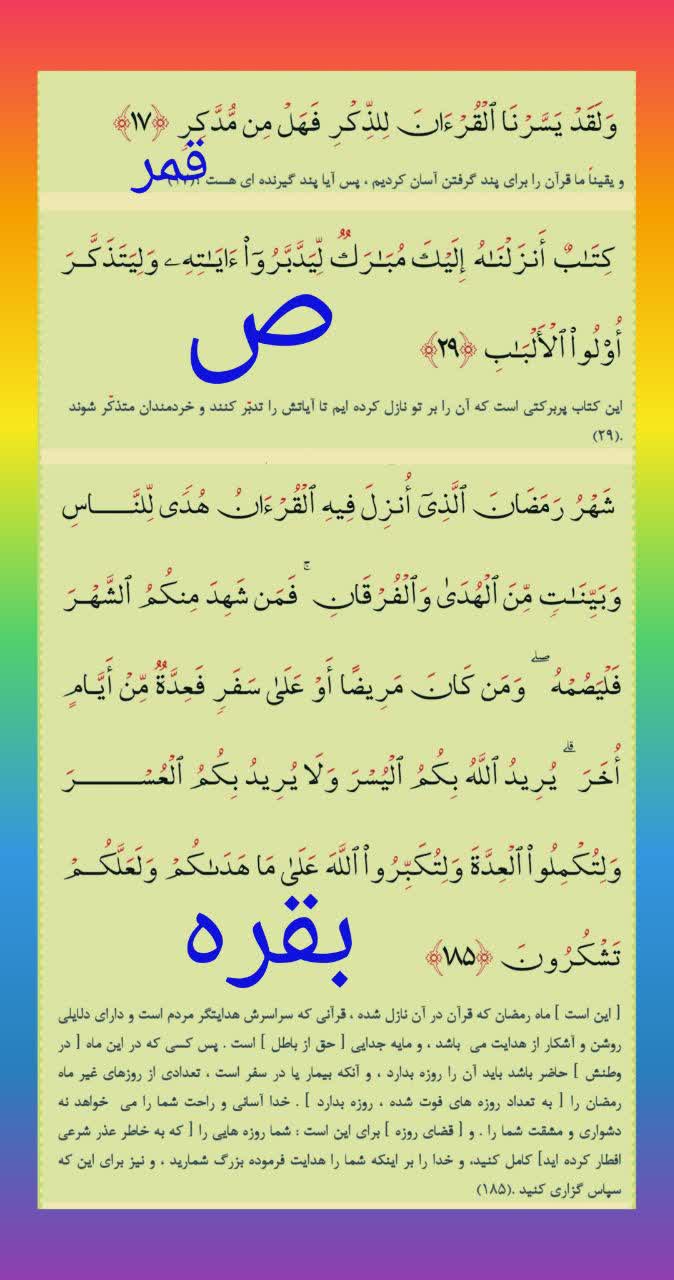 وَلَقَدْ يَسَّرْنَا ٱلْقُرْءَانَ لِلذِّكْرِ فَهَلْ مِن مُّدَّكِرٍ ﴿١٧﴾
قمر
و یقیناً ما قرآن را برای پند گرفتن آسان کردیم ، پس آیا پند گیرنده ای هست ؟(۱۷)
كِتَـٰبٌ أَنزَلْنَـٰهُ إِلَيْكَ مُبَـٰرَكٌ لِّيَدَّبَّرُوٓا۟ ءَايَـٰتِهِۦ وَلِيَتَذَكَّرَ
أُو۟لُوا۟ ٱلْأَلْبَـٰبِ ﴿٢٩﴾
ص
این کتاب پربرکتی است که آن را بر تو نازل کرده ایم تا آیاتش را تدبّر کنند و خردمندان متذکّر شوند
.(۲۹)
شَهْرُ رَمَضَانَ ٱلَّذِىٓ أُنزِلَ فِيهِ ٱلْقُرْءَانُ هُدًى لِّلنَّـاسِ
وَبَيِّنَـٰتٍ مِّنَ ٱلْهُدَىٰ وَٱلْفُرْقَانِ ۚ فَمَن شَهِدَ مِنكُمُ ٱلشَّهْرَ
فَلْيَصُمْهُ ۖ وَمَن كَانَ مَرِيضًا أَوْ عَلَىٰ سَفَرٍ فَعِدَّةٌ مِّنْ أَيَّامٍ
أُخَرَ ۗ يُرِيدُ ٱللَّهُ بِكُمُ ٱلْيُسْرَ وَلَا يُرِيدُ بِكُمُ ٱلْعُسْـرَ
وَلِتُكْمِلُوا۟ ٱلْعِدَّةَ وَلِتُكَبِّرُوا۟ ٱللَّهَ عَلَىٰ مَا هَدَىٰكُمْ وَلَعَلَّكُمْ
تَشْكُرُونَ ﴿١٨٥﴾
بقره
[ این است ] ماه رمضان که قرآن در آن نازل شده ، قرآنی که سراسرش هدایتگر مردم است و دارای دلایلی
روشن و آشکار از هدایت می باشد ، و مایه جدایی [ حق از باطل ] است . پس کسی که در این ماه [ در
وطنش ] حاضر باشد باید آن را روزه بدارد ، و آنکه بیمار یا در سفر است ، تعدادی از روزهای غیر ماه
رمضان را [ به تعداد روزه های فوت شده ، روزه بدارد ] . خدا آسانی و راحت شما را می خواهد نه
دشواری و مشقت شما را . و [ قضای روزه ] برای این است : شما روزه هایی را [ که به خاطر عذر شرعی
افطار کرده اید] کامل کنید، و خدا را بر اینکه شما را هدایت فرموده بزرگ شمارید ، و نیز برای این که
سپاس گزاری کنید .(۱۸۵)